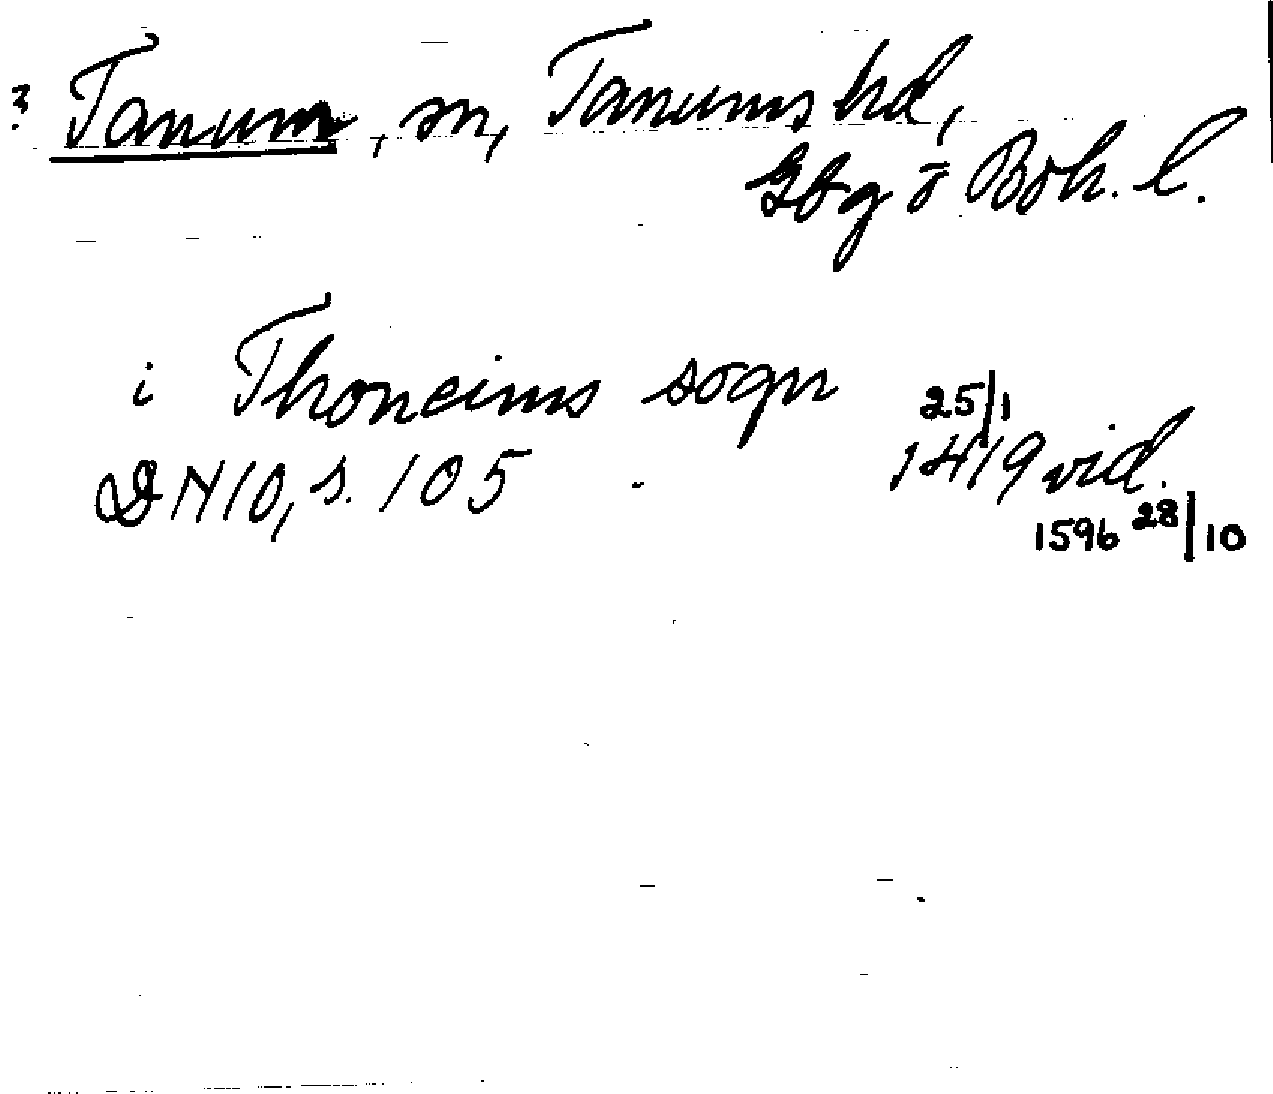 ? Tanum, sn, Tanums hd,
Gbg o Boh. l.
i Thoneims sogn 25/1
DN 10, s. 105 - 1419 vid.
1596 28/10